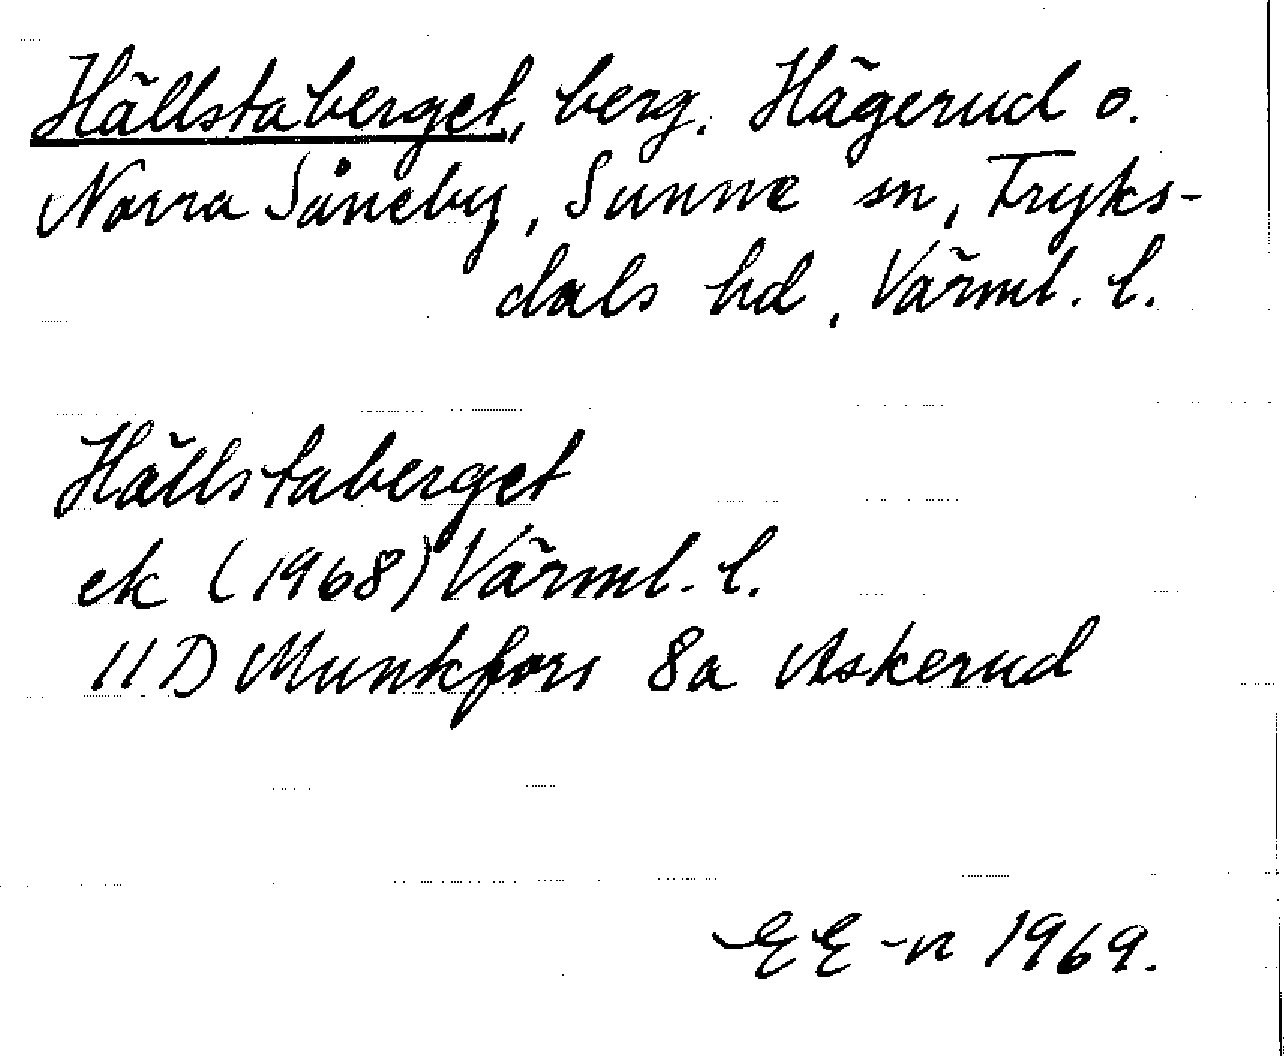 Hällstaberget, berg. Hägerud o.
Norra Såneby, Sunne sn, Fryks-
dals hd, Värml. l.
Hällstaberget
ek (1968) Värml. l.
11D Munkfors 8a Askerud
EE-n 1969.